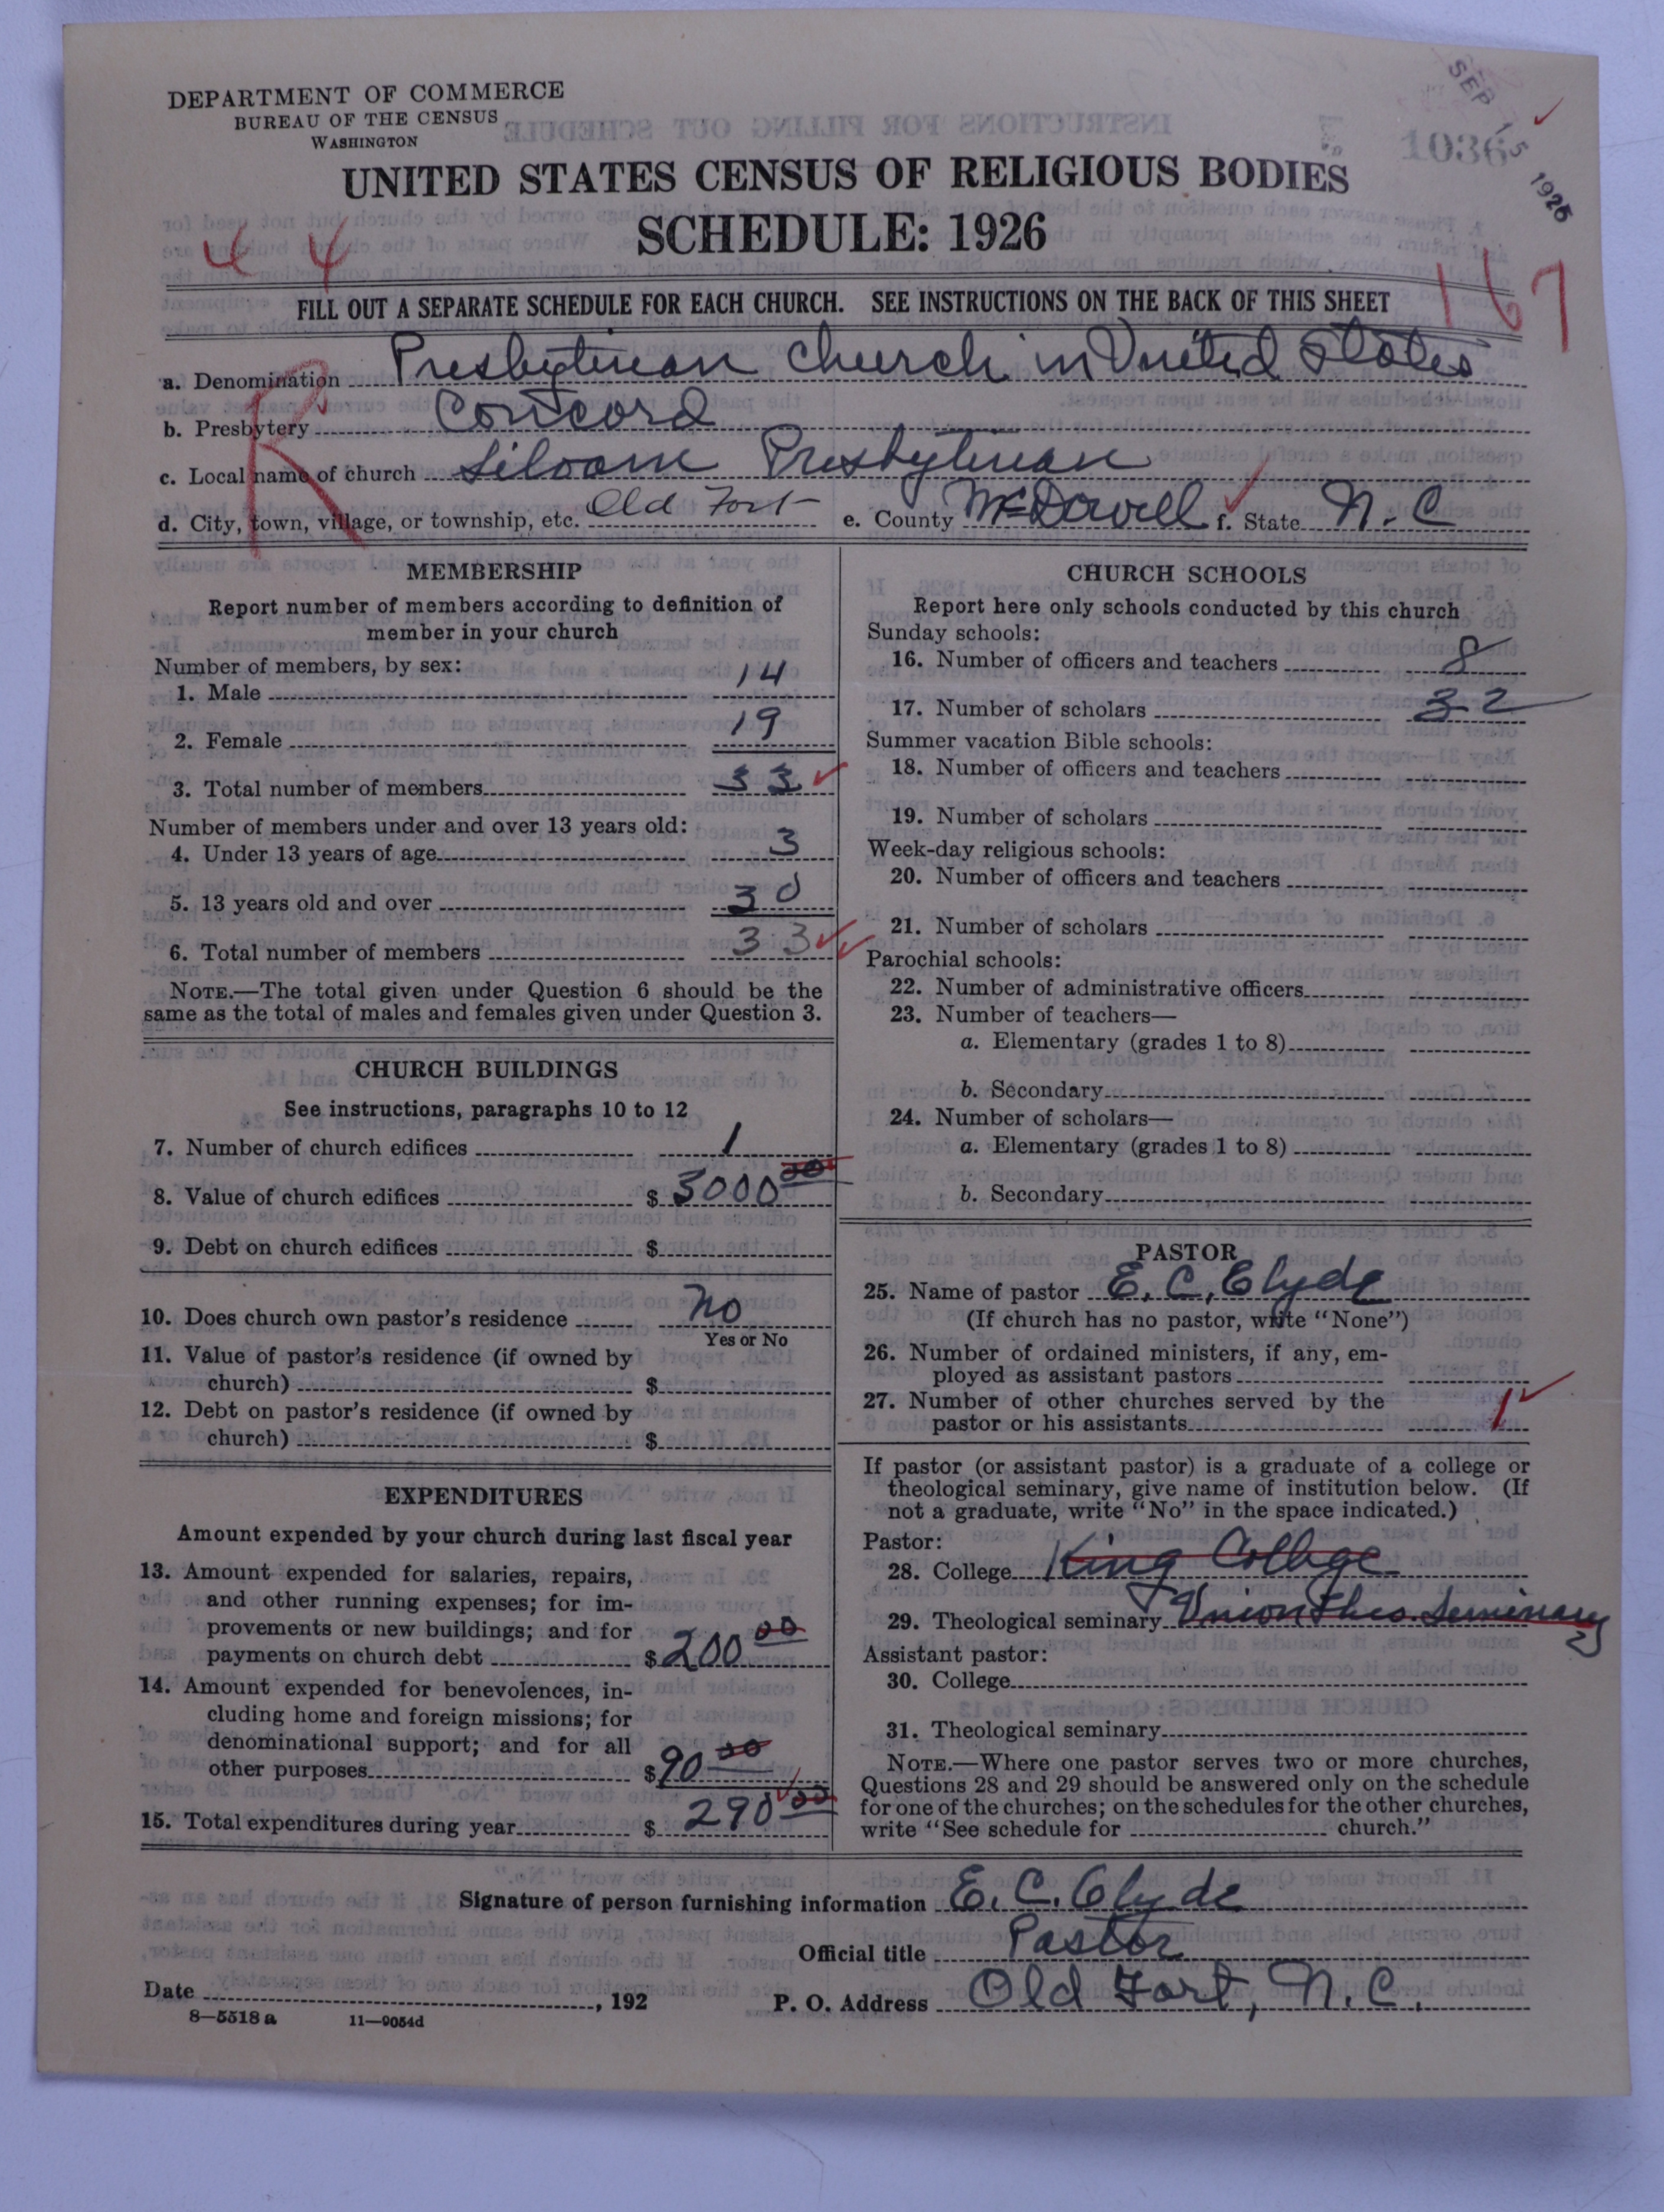 DEPARTMENT OF COMMERCE
BUREAU OF THE CENSUS
WASHINGTON
SEP 15 1926
1036
UNITED STATES CENSUS OF RELIGIOUS BODIES
SCHEDULE: 1926
44
167
FILL OUT A SEPARATE SCHEDULE FOR EACH CHURCH. SEE INSTRUCTIONS ON THE BACK OF THIS SHEET
R
a. Denomination Presbyterian Church in United States
b. Presbytery Concord
c. Local name of church Siloam Presbyterian
d. City, town, village, or township, etc. Old Fort e. County McDowell f. State N.C
MEMBERSHIP
Report number of members according to definition of
member in your church
Number of members, by sex:
1. Male 14
2. Female 19
3. Total number of members 33
Number of members under and over 13 years old:
4. Under 13 years of age 3
5. 13 years old and over 30
6. Total number of members 33
NOTE.—The total given under Question 6 should be the
same as the total of males and females given under Question 3.
CHURCH BUILDINGS
See instructions, paragraphs 10 to 12
7. Number of church edifices 1
8. Value of church edifices $ 3000 00
9. Debt on church edifices $
10. Does church own pastor's residence No
Yes or No
11. Value of pastor's residence (if owned by
church) $
12. Debt on pastor's residence (if owned by
church) $
EXPENDITURES
Amount expended by your church during last fiscal year
13. Amount expended for salaries, repairs,
and other running expenses; for im-
provements or new buildings; and for
payments on church debt $ 200 00
14. Amount expended for benevolences, in-
cluding home and foreign missions; for
denominational support; and for all
other purposes $ 90 00
15. Total expenditures during year $ 290 00
CHURCH SCHOOLS
Report here only schools conducted by this church
Sunday schools:
16. Number of officers and teachers 8
17. Number of scholars 32
Summer vacation Bible schools:
18. Number of officers and teachers
19. Number of scholars
Week-day religious schools:
20. Number of officers and teachers
21. Number of scholars
Parochial schools:
22. Number of administrative officers
23. Number of teachers—
a. Elementary (grades 1 to 8)
b. Secondary
24. Number of scholars—
a. Elementary (grades 1 to 8)
b. Secondary
PASTOR
25. Name of pastor E. C. Clyde
(If church has no pastor, write "None")
26. Number of ordained ministers, if any, em-
ployed as assistant pastors
27. Number of other churches served by the
pastor or his assistants 1
If pastor (or assistant pastor) is a graduate of a college or
theological seminary, give name of institution below. (If
not a graduate, write "No" in the space indicated.)
Pastor:
28. College King College
29. Theological seminary Union Theo. Seminary
Assistant pastor:
30. College
31. Theological seminary
NOTE.—Where one pastor serves two or more churches,
Questions 28 and 29 should be answered only on the schedule
for one of the churches; on the schedules for the other churches,
write "See schedule for church."
Signature of person furnishing information E. C. Clyde
Official title Pastor
Date , 192 P. O. Address Old Fort, N.C.
8—5518a 11—9054d